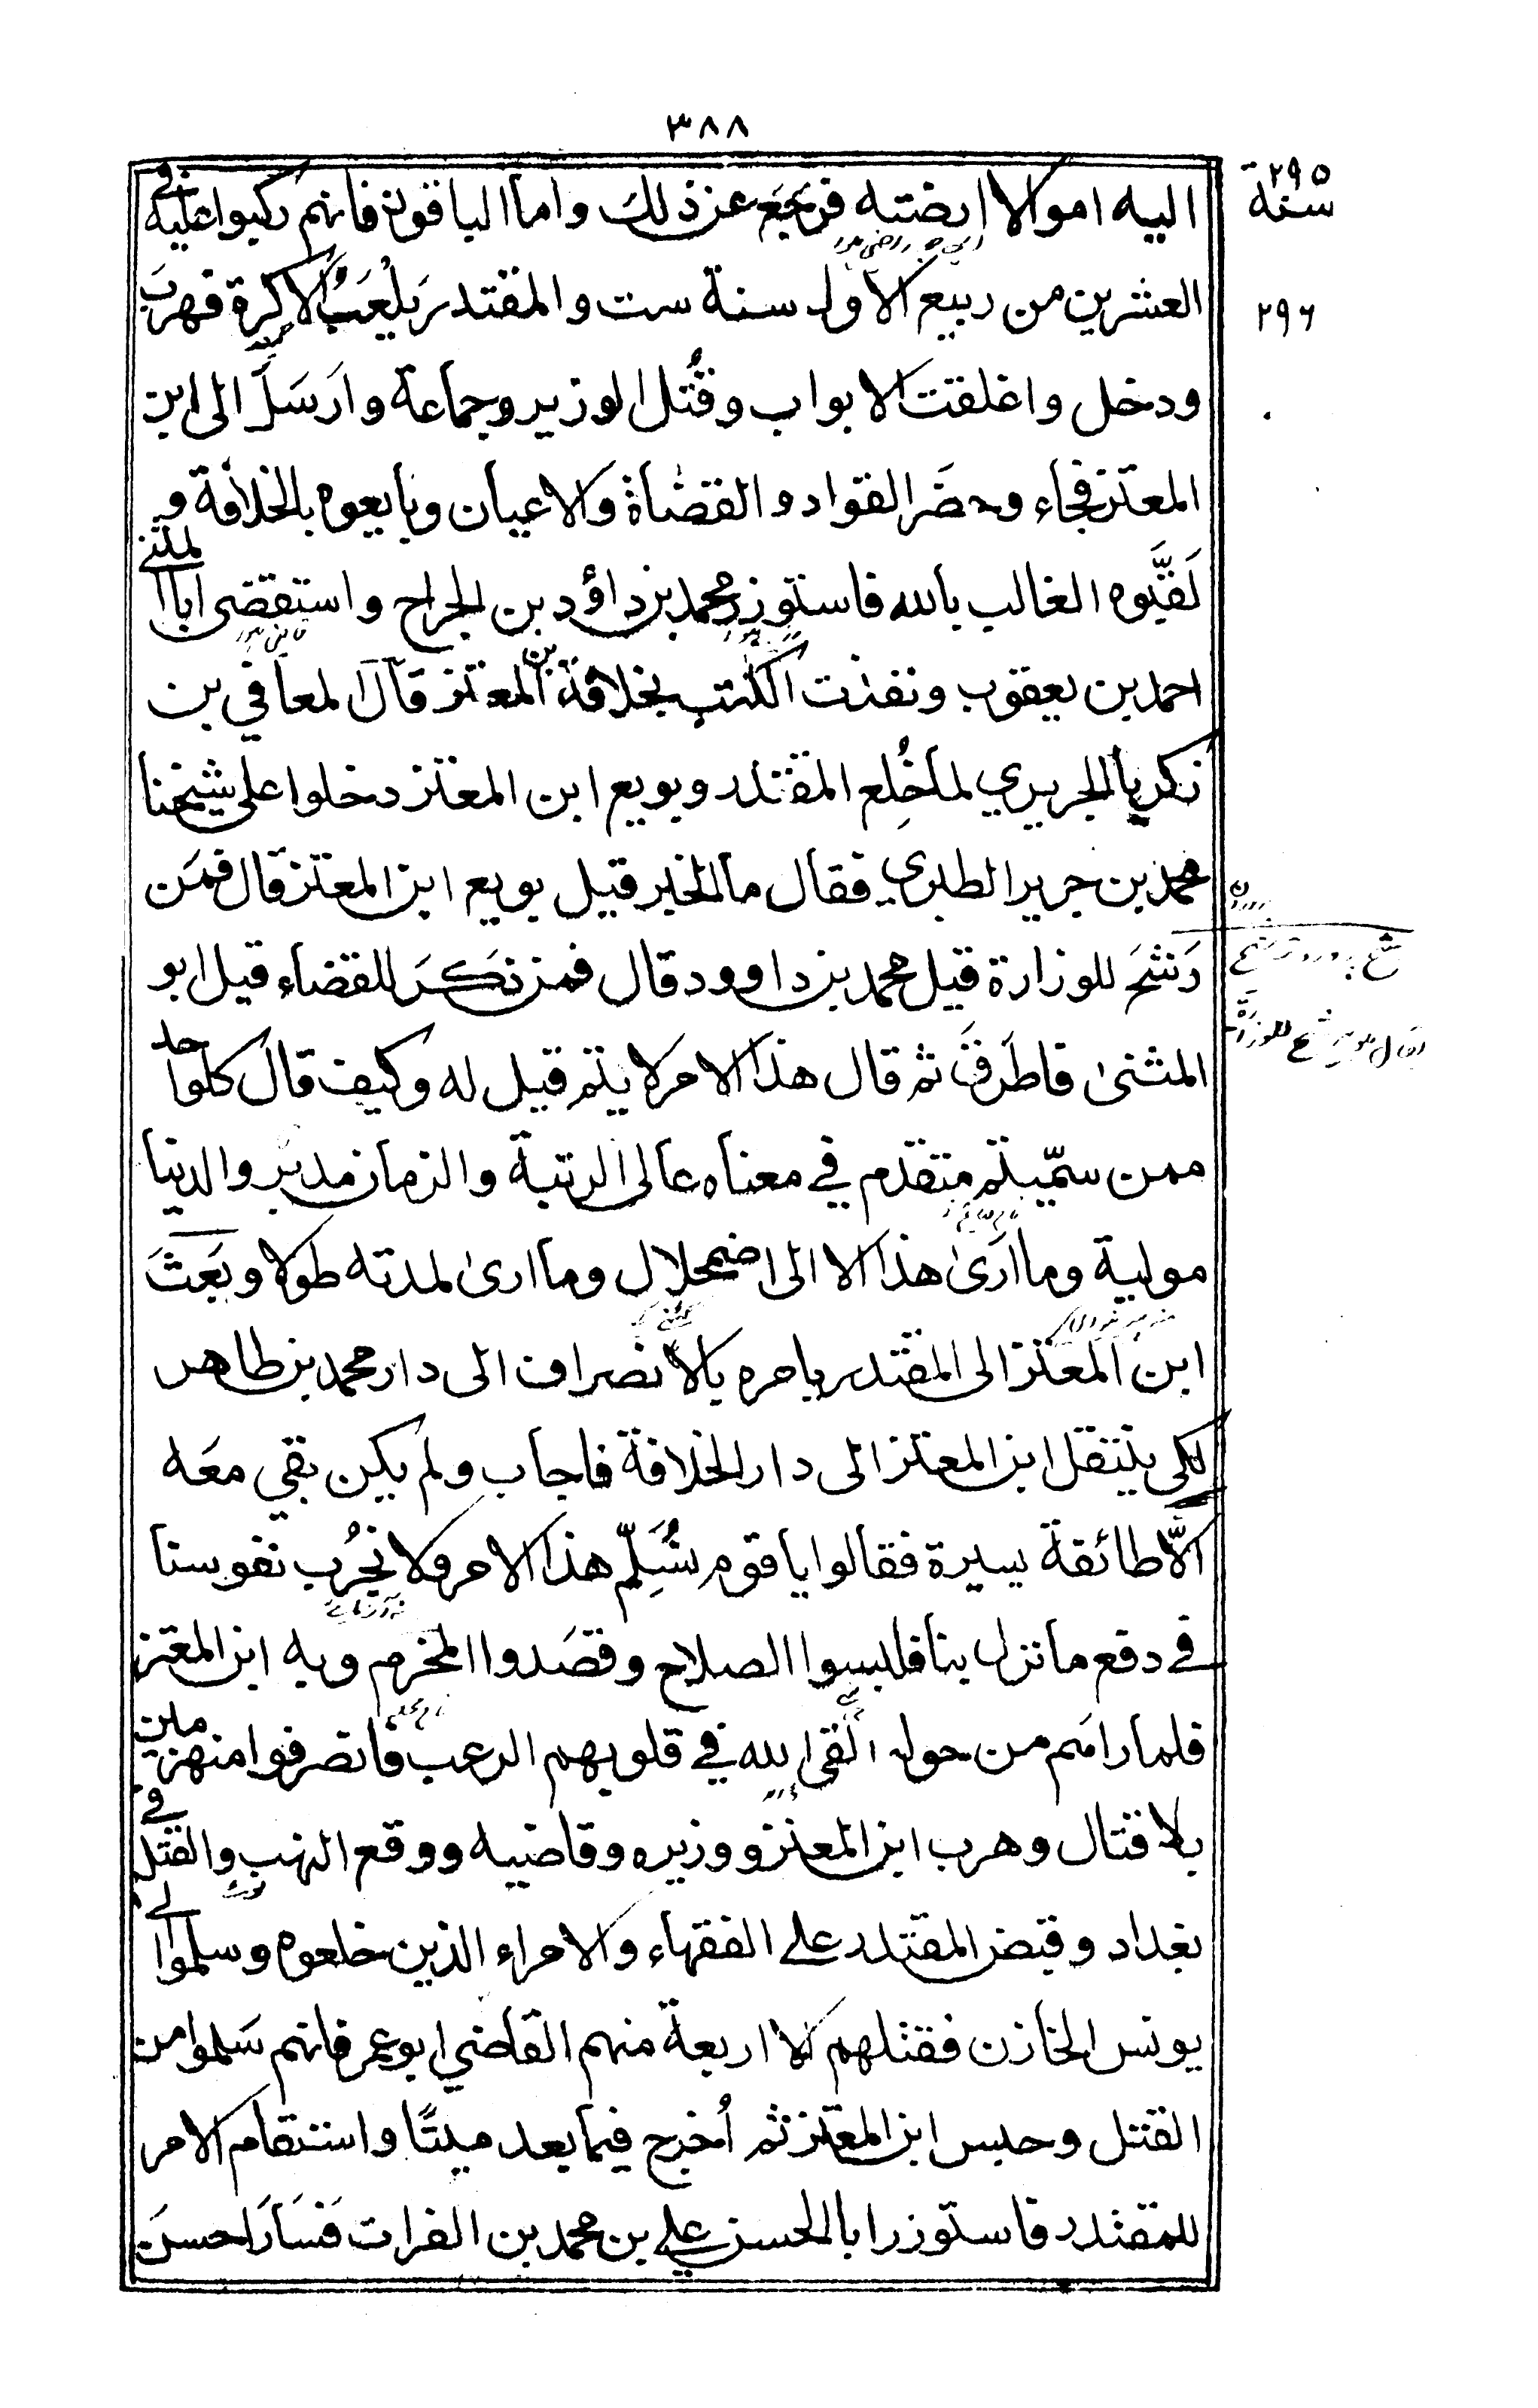 ٣٨٨
سنة ٢٩٥
اليه اموالا ارضته فرجع عن ذلك واما الباقون فانهم ركبوا عليه في
٢٩٦
العشرين من ربيع الاول سنة ست والمقتدر يلعب الاكرة فهرب
ودخل واغلقت الابواب وقُتل الوزير وجماعة وارسَلَ الى ابن
المعتز فجاء وحضَر القواد والقضاة والاعيان وبايعوه بالخلافة و
لَقَّبوه الغالب بالله فاستوزر محمد بن داؤد بن الجراح واستقضى ابا المثنى
احمد بن يعقوب ونفذت الكتب بخلافة بن المعتز قال المعافي بن
زكريا الجريري لما خُلِع المقتدر وبويع ابن المعتز دخلوا على شيخنا
محمد بن جرير الطبري فقال ما الخبر قيل بويع ابن المعتز قال فمَن
رَشحَ للوزارة قيل محمد بن داوود قال فمن ذكَرَ للقضاء قيل ابو
المثنى فاطَرقَ ثم قال هذا الامر لا يتم قيل له وكيف قال كلواحد
ممن سمّيتم متقدم في معناه عالى الرتبة والزمان مدبر والدنيا
مولية وما ارَىٰ هذا الا الى اضمحلال وما ارىٰ لمدته طولا وبَعثَ
ابن المعتز الى المقتدر يامره بالانصراف الى دار محمد بن طاهر
لكى ينتقل ابن المعتز الى دار الخلافة فاجاب ولم يكن بقي معَه
الّا طائفة يسيرة فقالوا يا قوم نُسَلِّم هذا الامر ولا نجرُب نفوسنا
في دفع ما نزل بنا فلبسوا الصلاح وقصَدوا المخرم وبه ابن المعتز
فلما راٰهم من حوله القى الله في قلوبهم الرعب فانصرفوا منهزمين
بلا قتال وهرب ابن المعتز ووزيره وقاضيه ووقع النهب والقتل في
بغداد وقبض المقتدر على الفقهاء والامراء الذين خلعوه وسلموا الى
يونس الخازن فقتلهم الا اربعة منهم القاضي ابوعمر فانهم سَلموا من
القتل وحبس ابن المعتز ثم اُخرج فيما بعد ميتًا واستقام الامر
للمقتدر فاستوزر ابا الحسن علي بن محمد بن الفرات فَسَارَ احسنَ